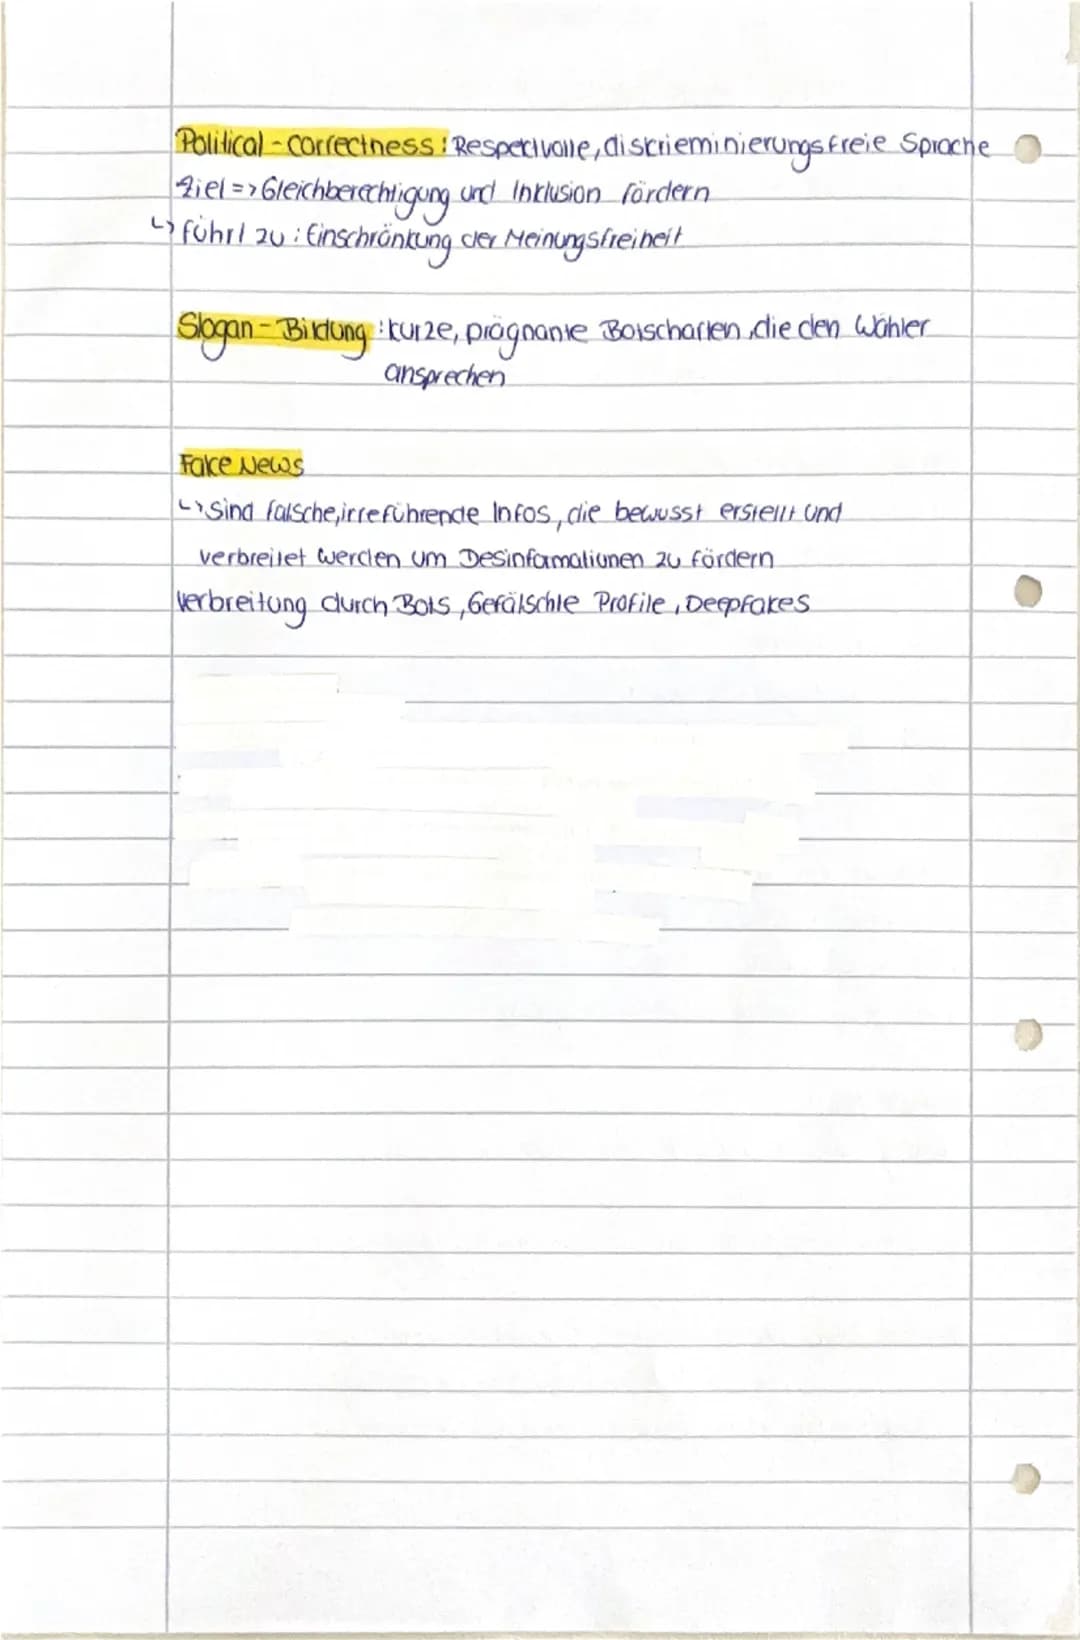 Political-Correctness: Respektvolle, diskrieminierungsfreie Sprache
Ziel => Gleichberechtigung und Inklusion fördern
↳ führt zu: Einschränkung der Meinungsfreiheit
Slogan-Bildung: kurze, prägnante Botschaften, die den Wähler
ansprechen
Fake News
↳ sind falsche, irreführende Infos, die bewusst erstellt und
verbreitet werden um Desinformationen zu fördern
Verbreitung durch Bots, Gefälschte Profile, Deepfakes